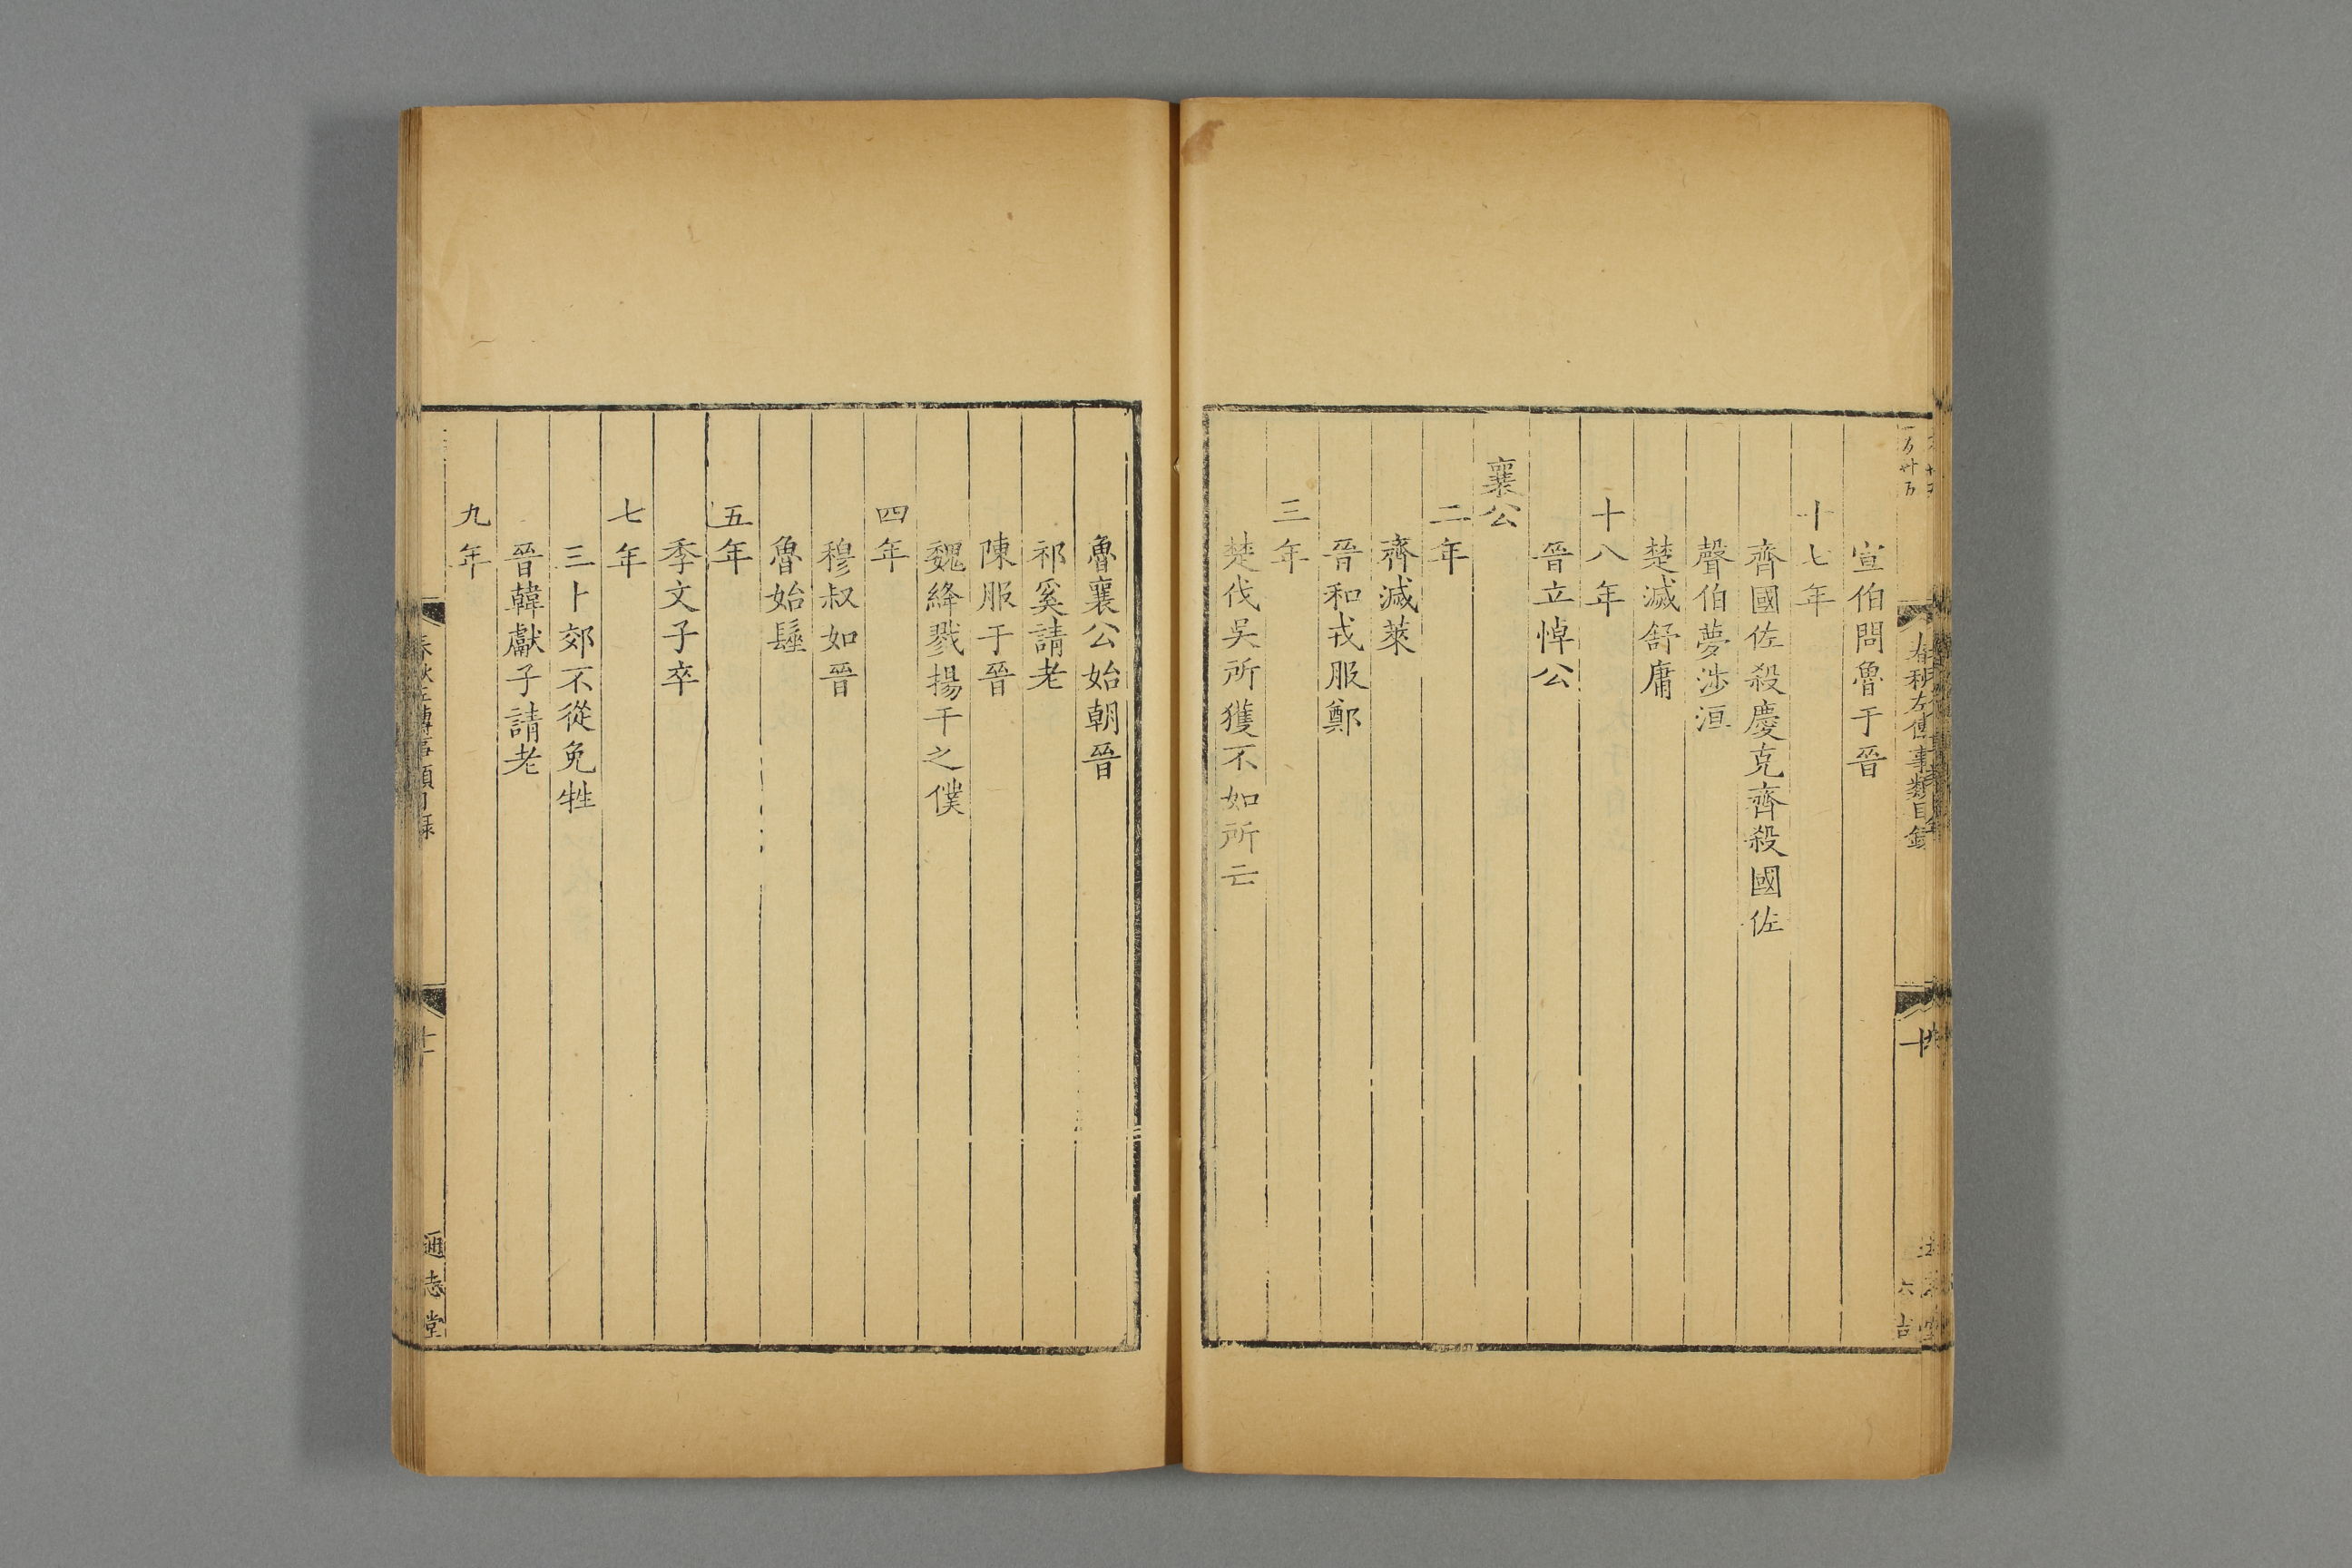 宣伯問魯于晉
十七年
齊國佐殺慶克齊殺國佐
聲伯夢涉洹
楚滅舒庸
十八年
晉立悼公
襄公
二年
齊滅萊
晉和戎服鄭
三年
楚伐吳所獲不如所亡
魯襄公始朝晉
祁奚請老
陳服于晉
魏絳戮揚干之僕
四年
穆叔如晉
魯始髽
五年
季文子卒
七年
三卜郊不從免牲
晉韓獻子請老
九年
春秋左傳事類目錄
十
通志堂